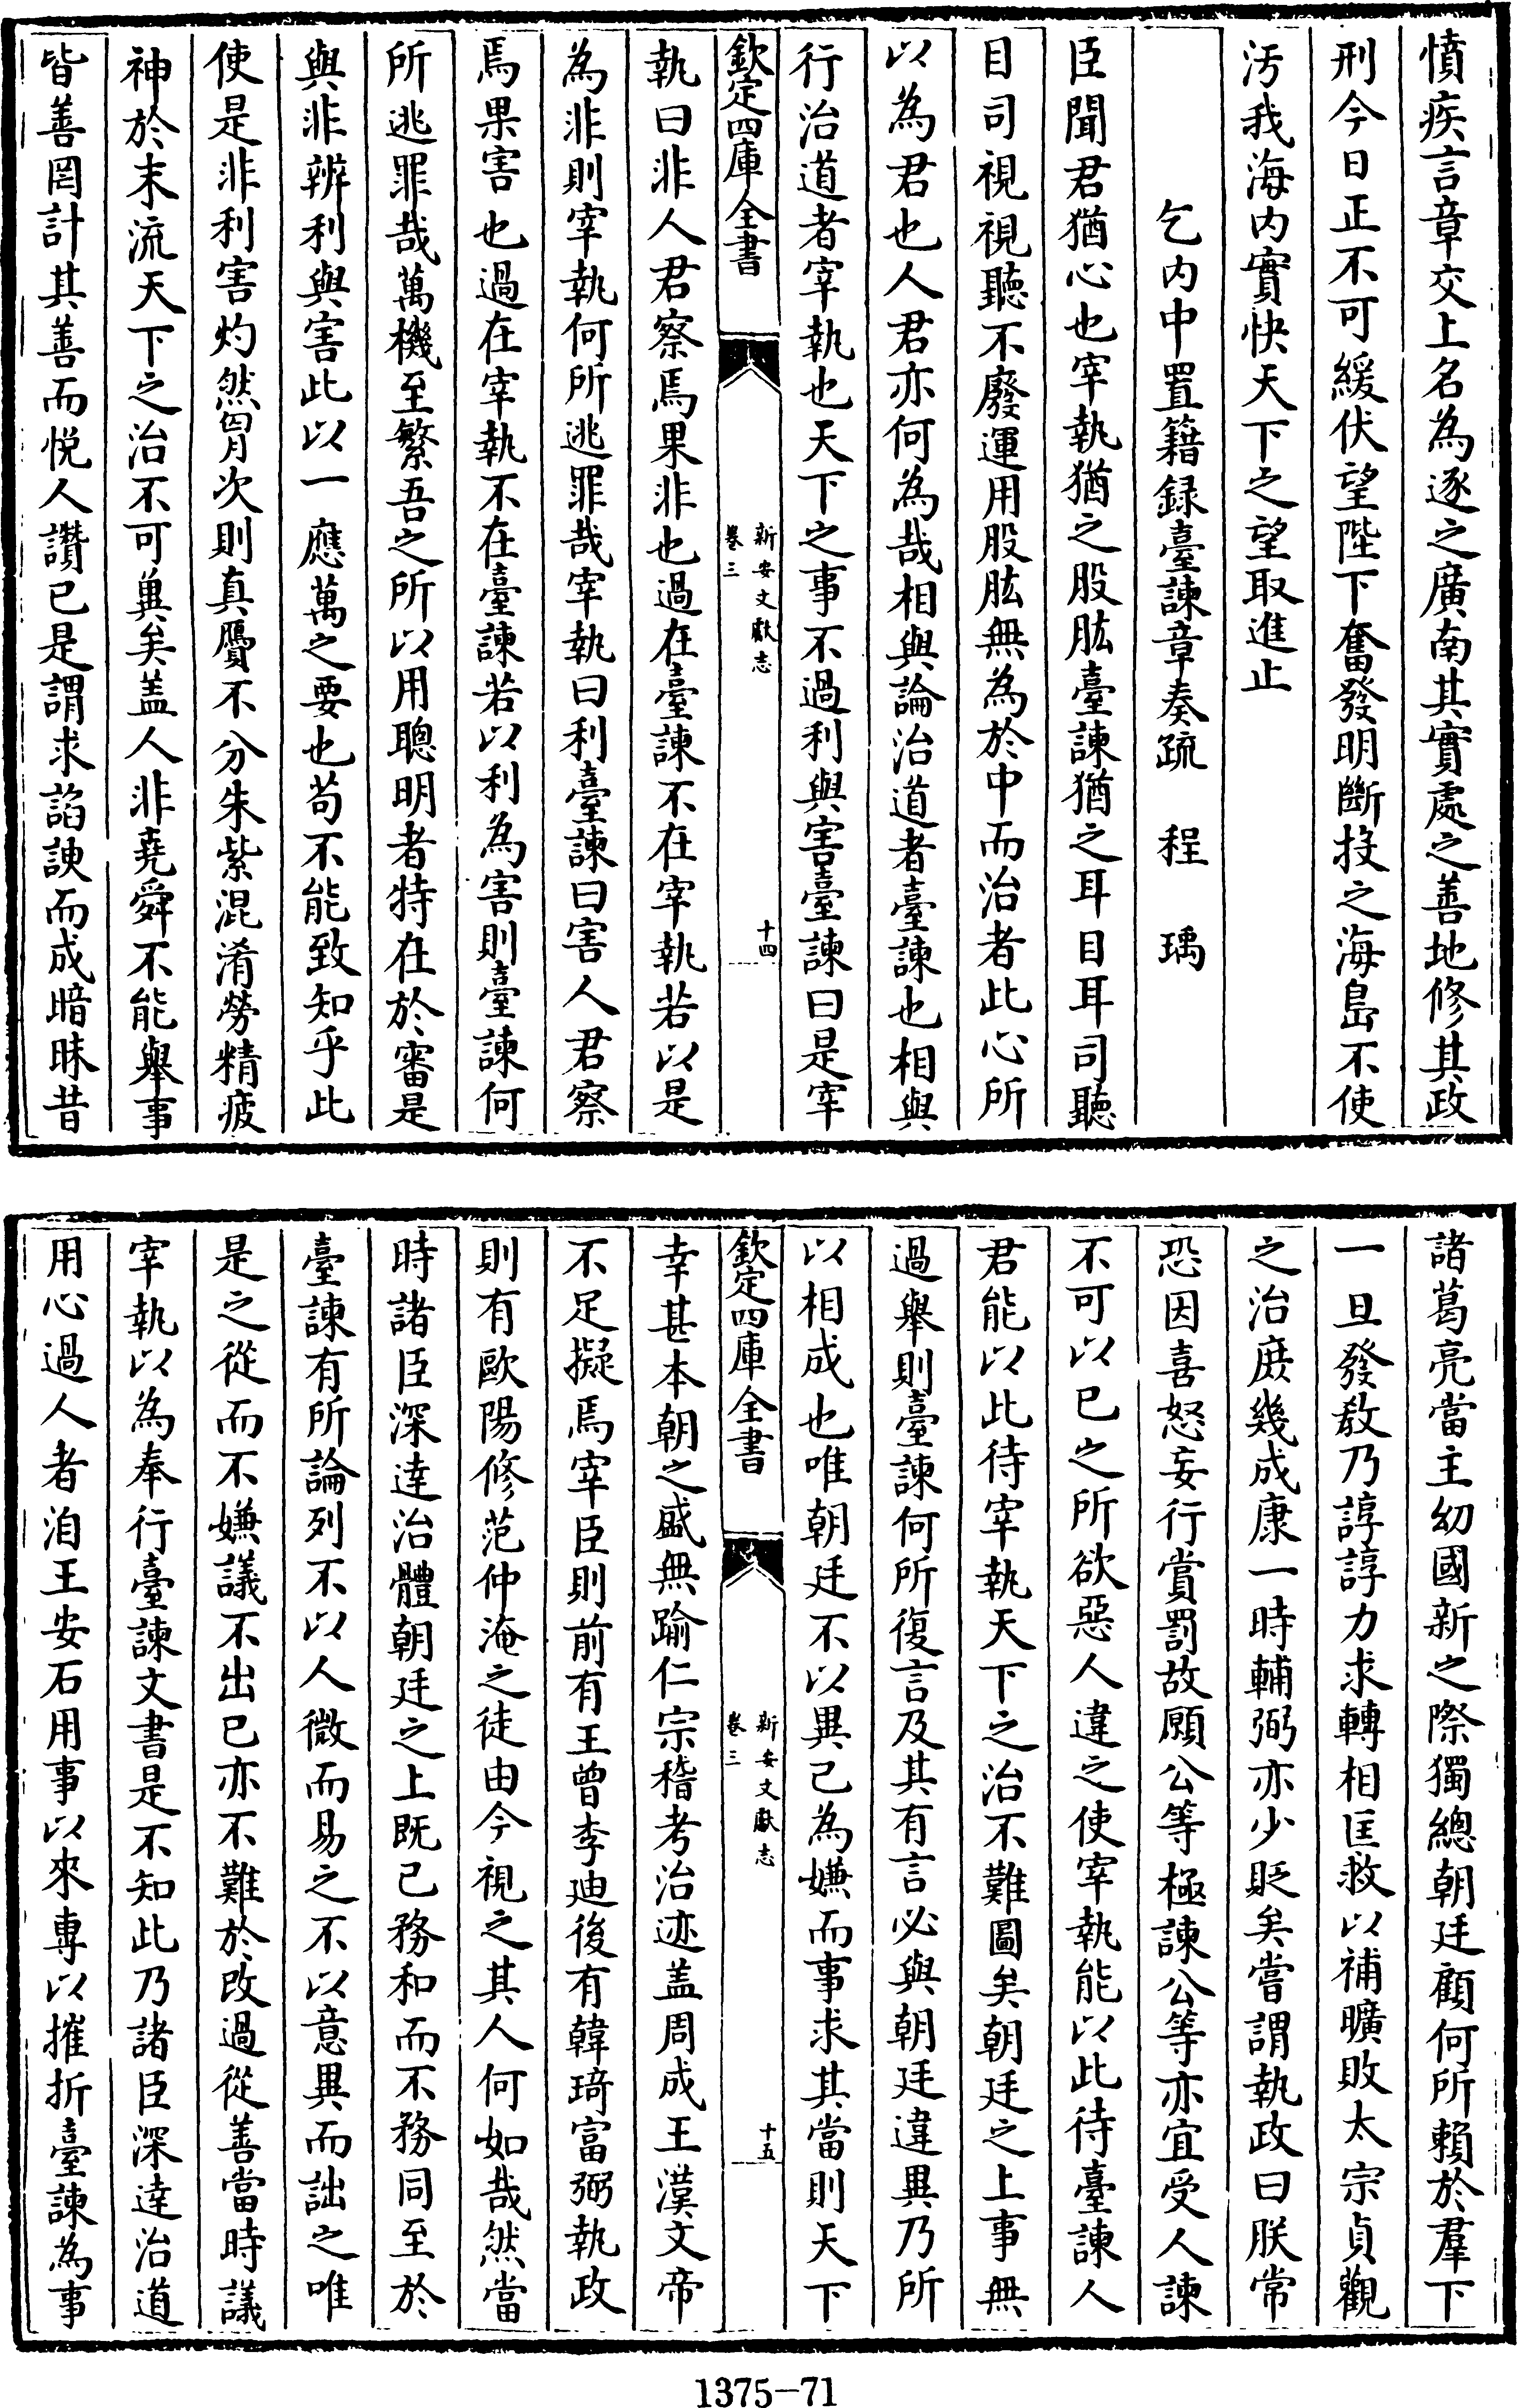 憤疾言章交上名為逐之廣南其實處之善地修其政
刑今日正不可緩伏望陛下奮發明斷投之海島不使
汚我海内實快天下之望取進止
乞内中置籍録臺諫章奏疏　程　瑀
臣聞君猶心也宰執猶之股肱臺諫猶之耳目耳司聽
目司視視聽不廢運用股肱無為於中而治者此心所
以為君也人君亦何為哉相與論治道者臺諫也相與
行治道者宰執也天下之事不過利與害臺諫曰是宰
欽定四庫全書
新安文獻志
卷三
十四
執曰非人君察焉果非也過在臺諫不在宰執若以是
為非則宰執何所逃罪哉宰執曰利臺諫曰害人君察
焉果害也過在宰執不在臺諫若以利為害則臺諫何
所逃罪哉萬機至繁吾之所以用聰明者特在於審是
與非辨利與害此以一應萬之要也茍不能致知乎此
使是非利害灼然胷次則真贗不分朱紫混淆勞精疲
神於末流天下之治不可兾矣盖人非堯舜不能舉事
皆善罔計其善而悦人讚已是謂求諂諛而成暗昧昔
諸葛亮當主幼國新之際獨總朝廷顧何所賴於羣下
一旦發教乃諄諄力求轉相匡救以補曠敗太宗貞觀
之治庶幾成康一時輔弼亦少貶矣嘗謂執政曰朕常
恐因喜怒妄行賞罰故願公等極諫公等亦宜受人諫
不可以已之所欲惡人違之使宰執能以此待臺諫人
君能以此待宰執天下之治不難圖矣朝廷之上事無
過舉則臺諫何所復言及其有言必與朝廷違異乃所
以相成也唯朝廷不以異己為嫌而事求其當則天下
欽定四庫全書
新安文獻志
卷三
十五
幸甚本朝之盛無踰仁宗稽考治迹盖周成王漢文帝
不足擬焉宰臣則前有王曾李迪後有韓琦富弼執政
則有歐陽修范仲淹之徒由今視之其人何如哉然當
時諸臣深逹治體朝廷之上既已務和而不務同至於
臺諫有所論列不以人微而易之不以意異而詘之唯
是之從而不嫌議不出已亦不難於改過從善當時議
宰執以為奉行臺諫文書是不知此乃諸臣深逹治道
用心過人者洎王安石用事以來專以摧折臺諫為事
1375-71